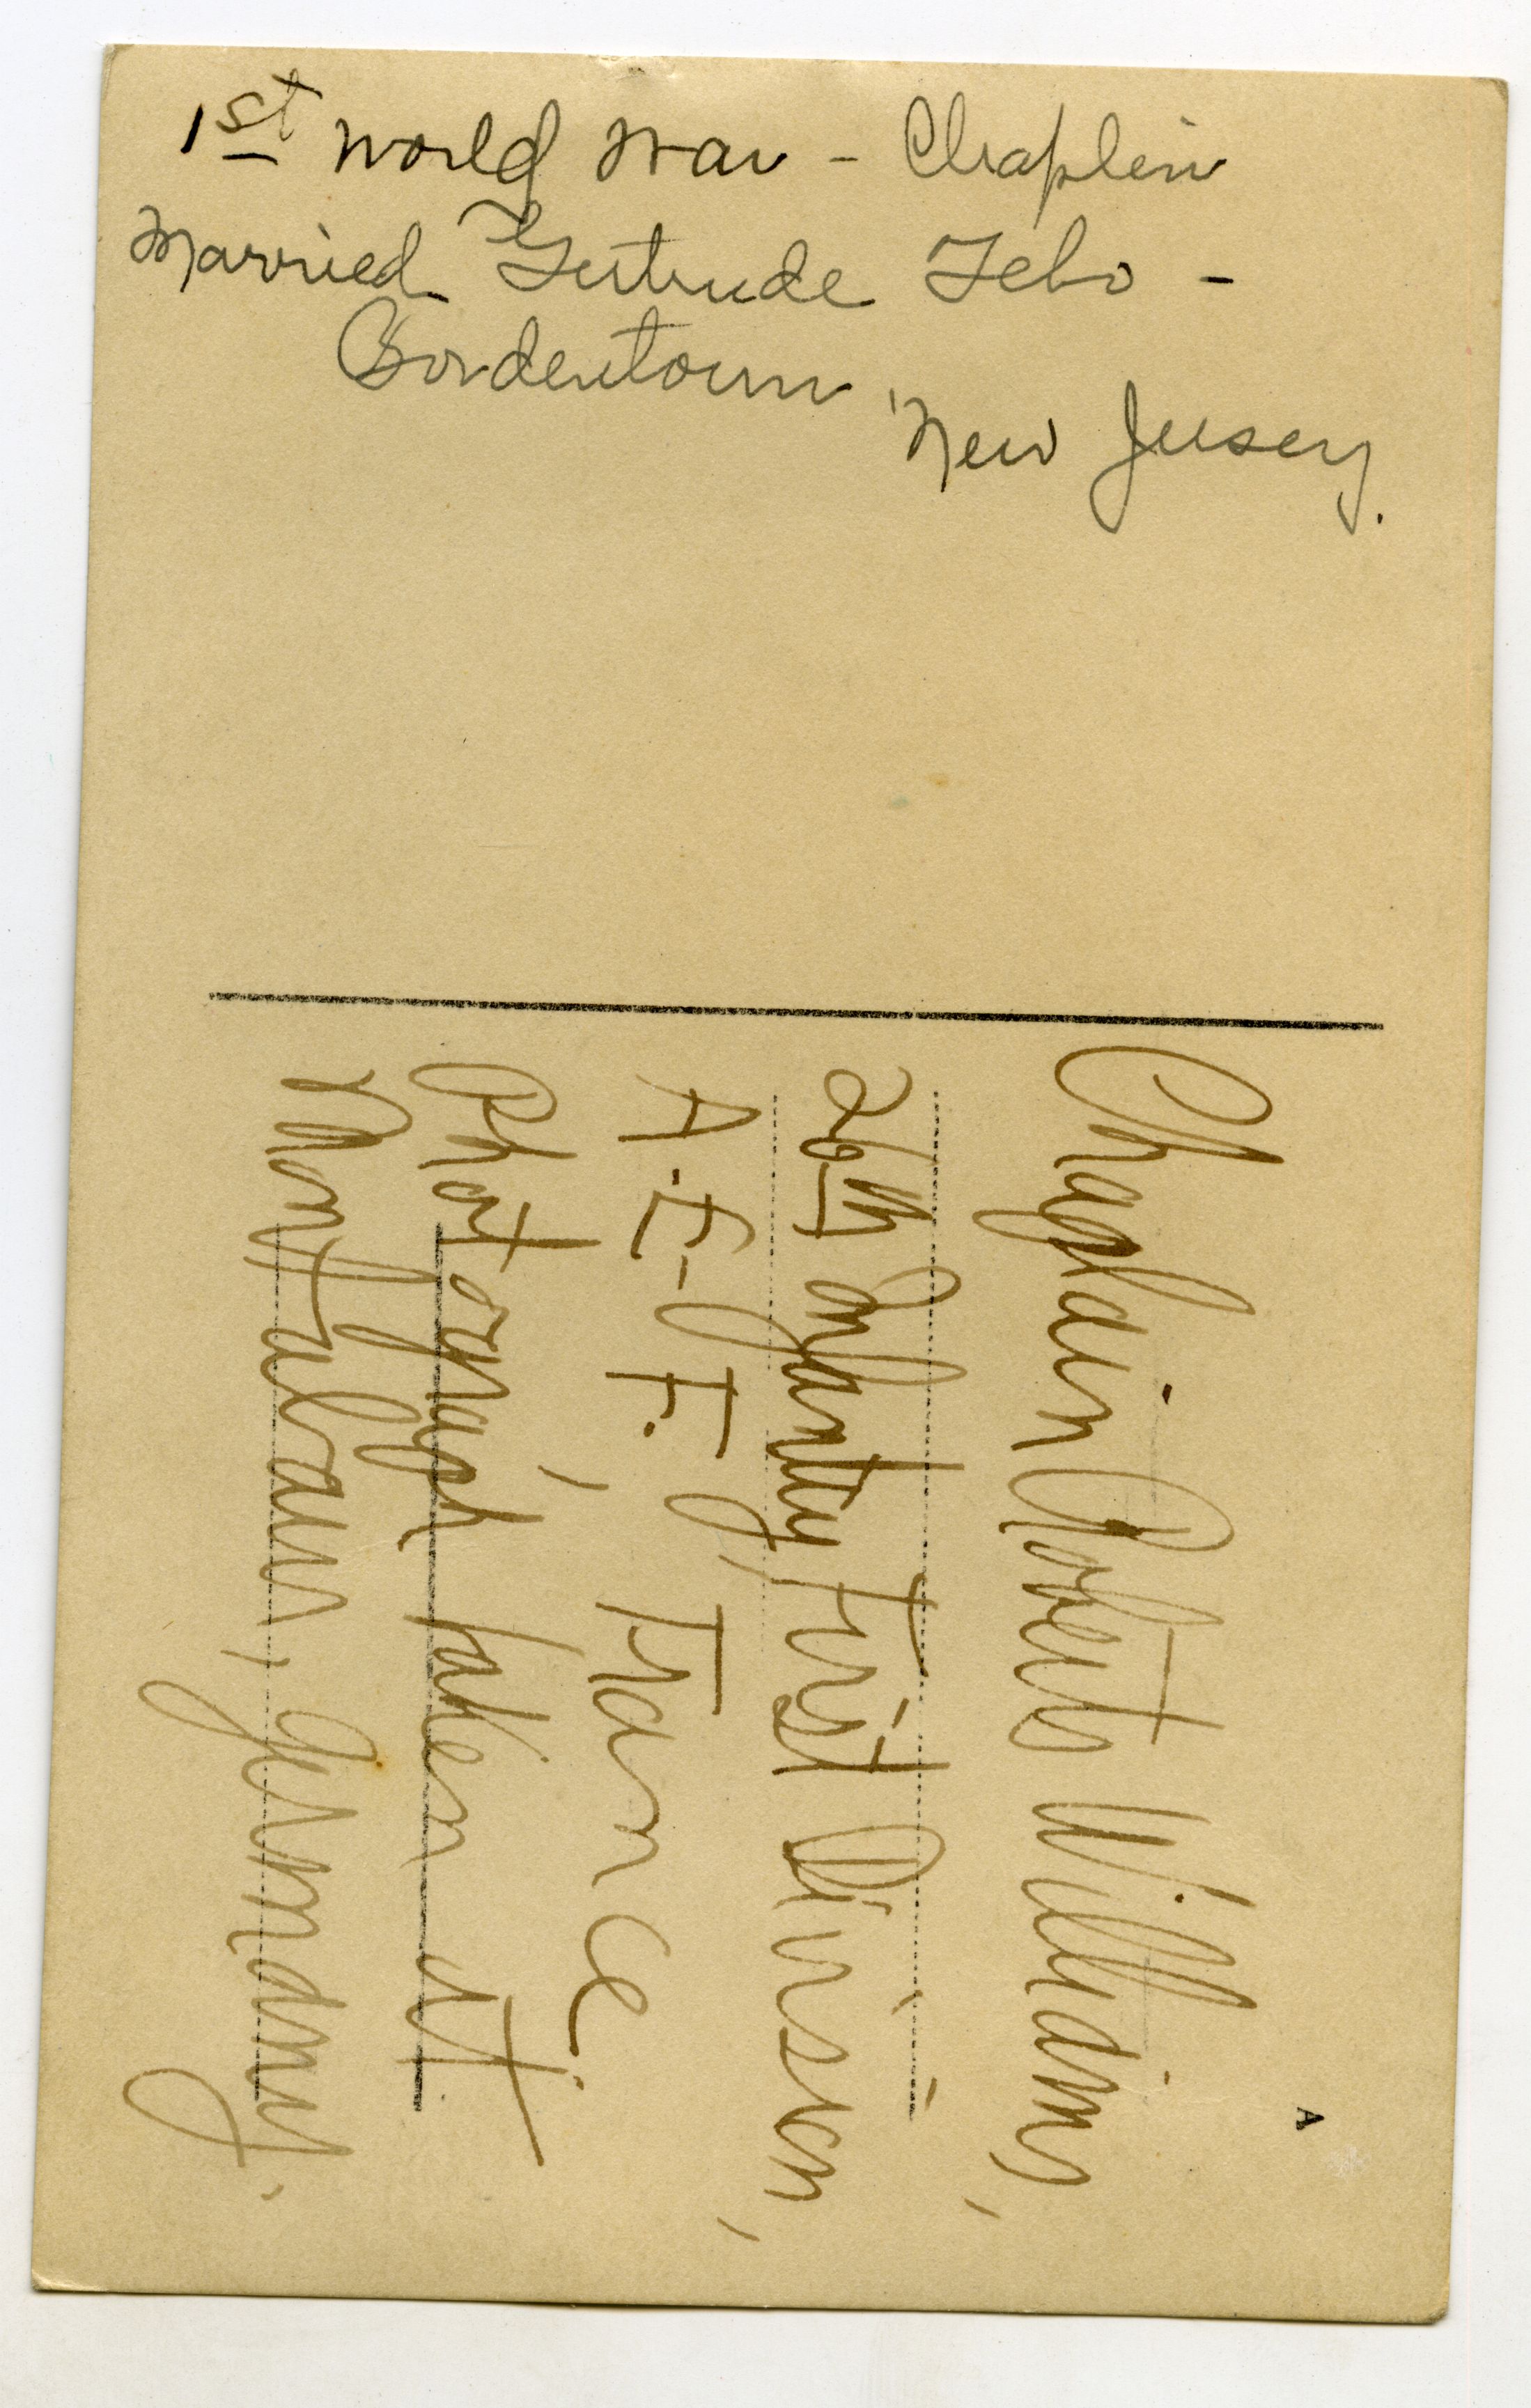 1st World War - Chaplin
Married Gertrude Tebo -
Bordentown
New Jersey.
Chaplain Roberts Williams,
26th Infantry, First Division,
A.E.F., France
Photograph taken at
Montabaur, Germany.
A